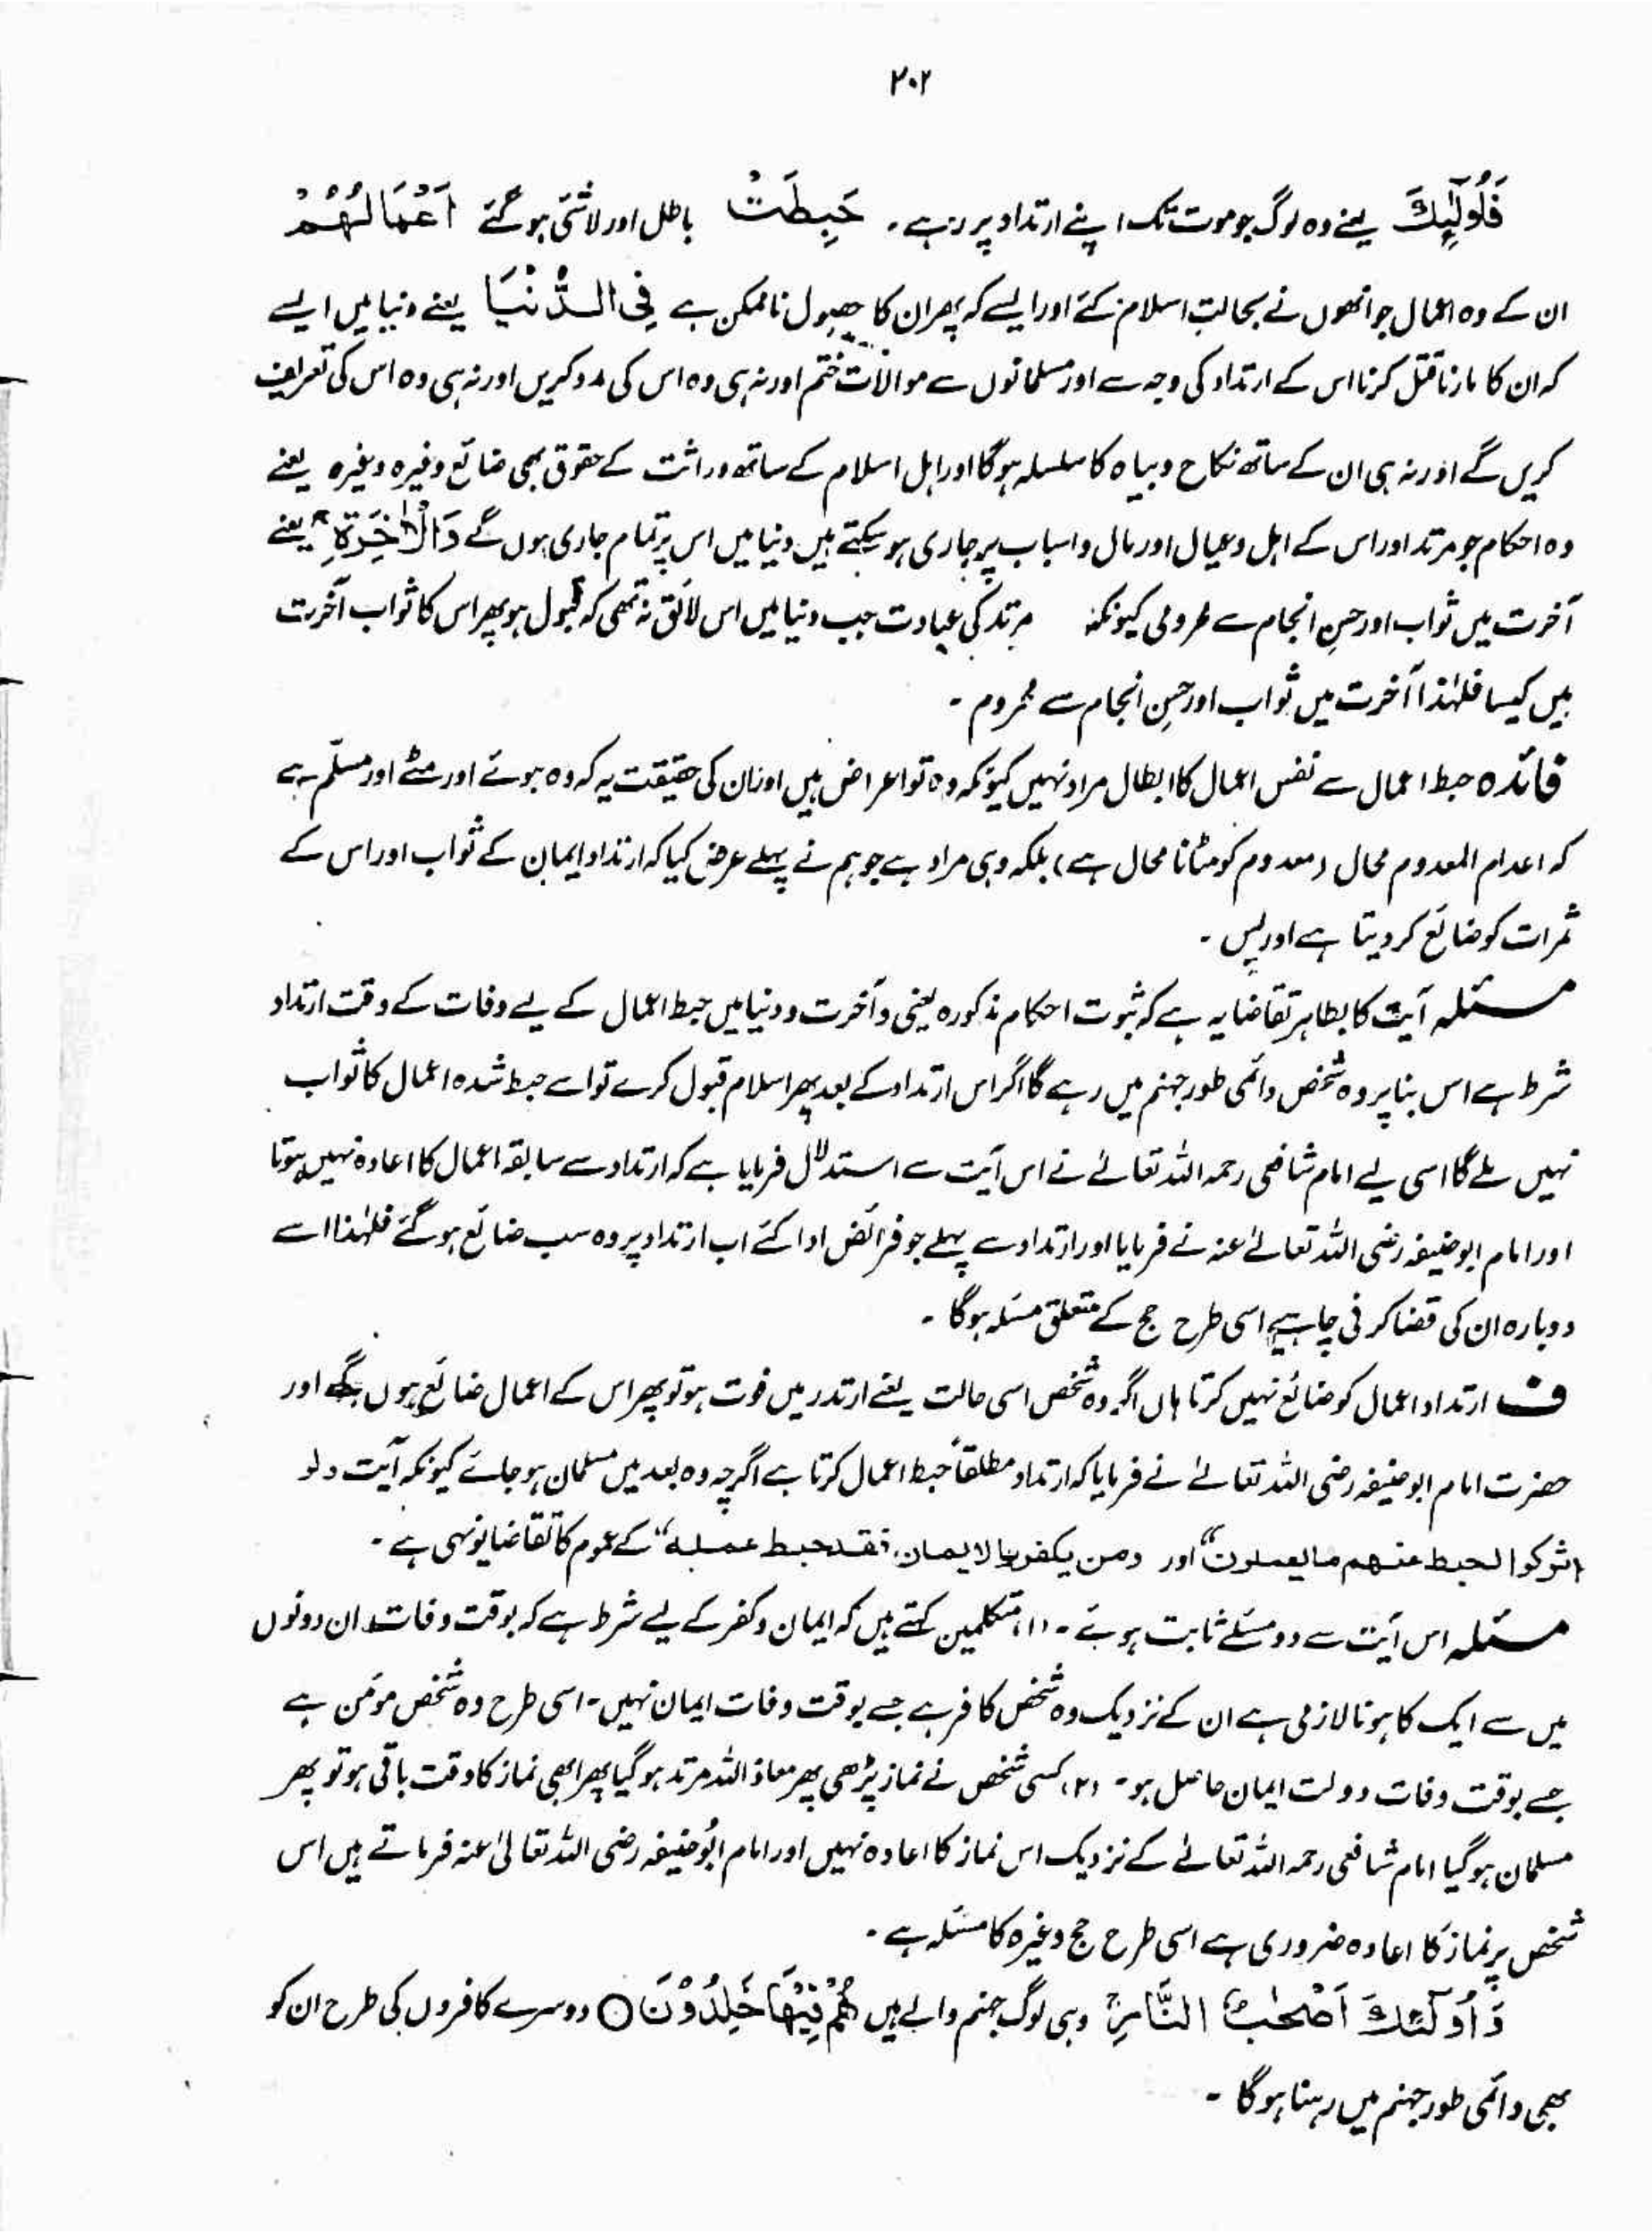 ۲۰۲
فَاُولٰٓئِكَ یعنے وہ لوگ جو موت تک اپنے ارتداد پر رہے۔ حَبِطَتْ باطل اور لاشئ ہو گئے اَعْمَالُهُمْ
ان کے وہ اعمال جو انھوں نے بحالتِ اسلام کئے اور ایسے کہ پھر ان کا حصول ناممکن ہے فِي الدُّنْيَا یعنے دنیا میں ایسے
کہ ان کا مارنا قتل کرنا اس کے ارتداد کی وجہ سے اور مسلمانوں سے موالات ختم اور نہ ہی وہ اس کی مدد کریں اور نہ ہی وہ اس کی تعریف
کریں گے اور نہ ہی ان کے ساتھ نکاح و بیاہ کا سلسلہ ہوگا اور اہل اسلام کے ساتھ وراثت کے حقوق بھی ضائع وغیرہ وغیرہ یعنے
وہ احکام جو مرتد اور اس کے اہل و عیال اور مال و اسباب پر جاری ہو سکتے ہیں دنیا میں اس پر تمام جاری ہوں گے وَالْاٰخِرَةِ ۚ یعنے
آخرت میں ثواب اور حسنِ انجام سے محرومی کیونکہ مرتد کی عبادت جب دنیا میں اس لائق نہ تھی کہ قبول ہو پھر اس کا ثواب آخرت
میں کیسا فلہٰذا آخرت میں ثواب اور حسنِ انجام سے محروم ۔
فائدہ حبط اعمال سے نفس اعمال کا ابطال مراد نہیں کیونکہ وہ تو اعراض ہیں اور ان کی حقیقت یہ کہ وہ ہوئے اور مٹے اور مسلّم ہے
کہ اعدام المعدوم محال (معدوم کو مٹانا محال ہے) بلکہ وہی مراد ہے جو ہم نے پہلے عرض کیا کہ ارتداد ایمان کے ثواب اور اس کے
ثمرات کو ضائع کر دیتا ہے اور بس ۔
مسئلہ آیت کا بظاہر تقاضا یہ ہے کہ ثبوت احکام مذکورہ یعنی و آخرت و دنیا میں حبط اعمال کے لیے وفات کے وقت ارتداد
شرط ہے اس بنا پر وہ شخص دائمی طور جہنم میں رہے گا اگر اس ارتداد کے بعد پھر اسلام قبول کرے تو اسے حبط شدہ اعمال کا ثواب
نہیں ملے گا اسی لیے امام شافعی رحمہ اللہ تعالےٰ نے اس آیت سے استدلال فرمایا ہے کہ ارتداد سے سابقہ اعمال کا اعادہ نہیں ہوتا
اور امام ابوحنیفہ رضی اللہ تعالےٰ عنہ نے فرمایا اور ارتداد سے پہلے جو فرائض ادا کئے اب ارتداد پر وہ سب ضائع ہو گئے فلہٰذا اسے
دوبارہ ان کی قضا کرنی چاہیے اسی طرح حج کے متعلق مسئلہ ہوگا ۔
ف ارتداد اعمال کو ضائع نہیں کرتا ہاں اگر وہ شخص اسی حالت یعنے ارتدر میں فوت ہو تو پھر اس کے اعمال ضائع ہوں گے اور
حضرت امام ابوحنیفہ رضی اللہ تعالےٰ نے فرمایا کہ ارتداد مطلقاً حبط اعمال کرتا ہے اگرچہ وہ بعد میں مسلمان ہو جائے کیونکہ آیت ولو
اشرکوا لحبط عنهم ما یعملون“ اور ومن یکفر بالایمان فقد حبط عمله“ کے عموم کا تقاضا یونہی ہے ۔
مسئلہ اس آیت سے دو مسئلے ثابت ہوئے ۔ (۱) متکلمین کہتے ہیں کہ ایمان و کفر کے لیے شرط ہے کہ بوقت وفات ان دونوں
میں سے ایک کا ہونا لازمی ہے ان کے نزدیک وہ شخص کافر ہے جسے بوقت وفات ایمان نہیں ۔ اسی طرح وہ شخص مؤمن ہے
جسے بوقت وفات دولت ایمان حاصل ہو ۔ (۲) کسی شخص نے نماز پڑھی پھر معاذ اللہ مرتد ہو گیا پھر ابھی نماز کا وقت باقی ہو تو پھر
مسلمان ہو گیا امام شافعی رحمہ اللہ تعالےٰ کے نزدیک اس نماز کا اعادہ نہیں اور امام ابُوحنیفہ رضی اللہ تعالیٰ عنہ فرماتے ہیں اس
شخص پر نماز کا اعادہ ضروری ہے اسی طرح حج وغیرہ کا مسئلہ ہے ۔
وَاُولٰٓئِكَ اَصْحٰبُ النَّارِ ۚ وہی لوگ جہنم والے ہیں هُمْ فِيْهَا خٰلِدُوْنَ ○ دوسرے کافروں کی طرح ان کو
بھی دائمی طور جہنم میں رہنا ہوگا ۔